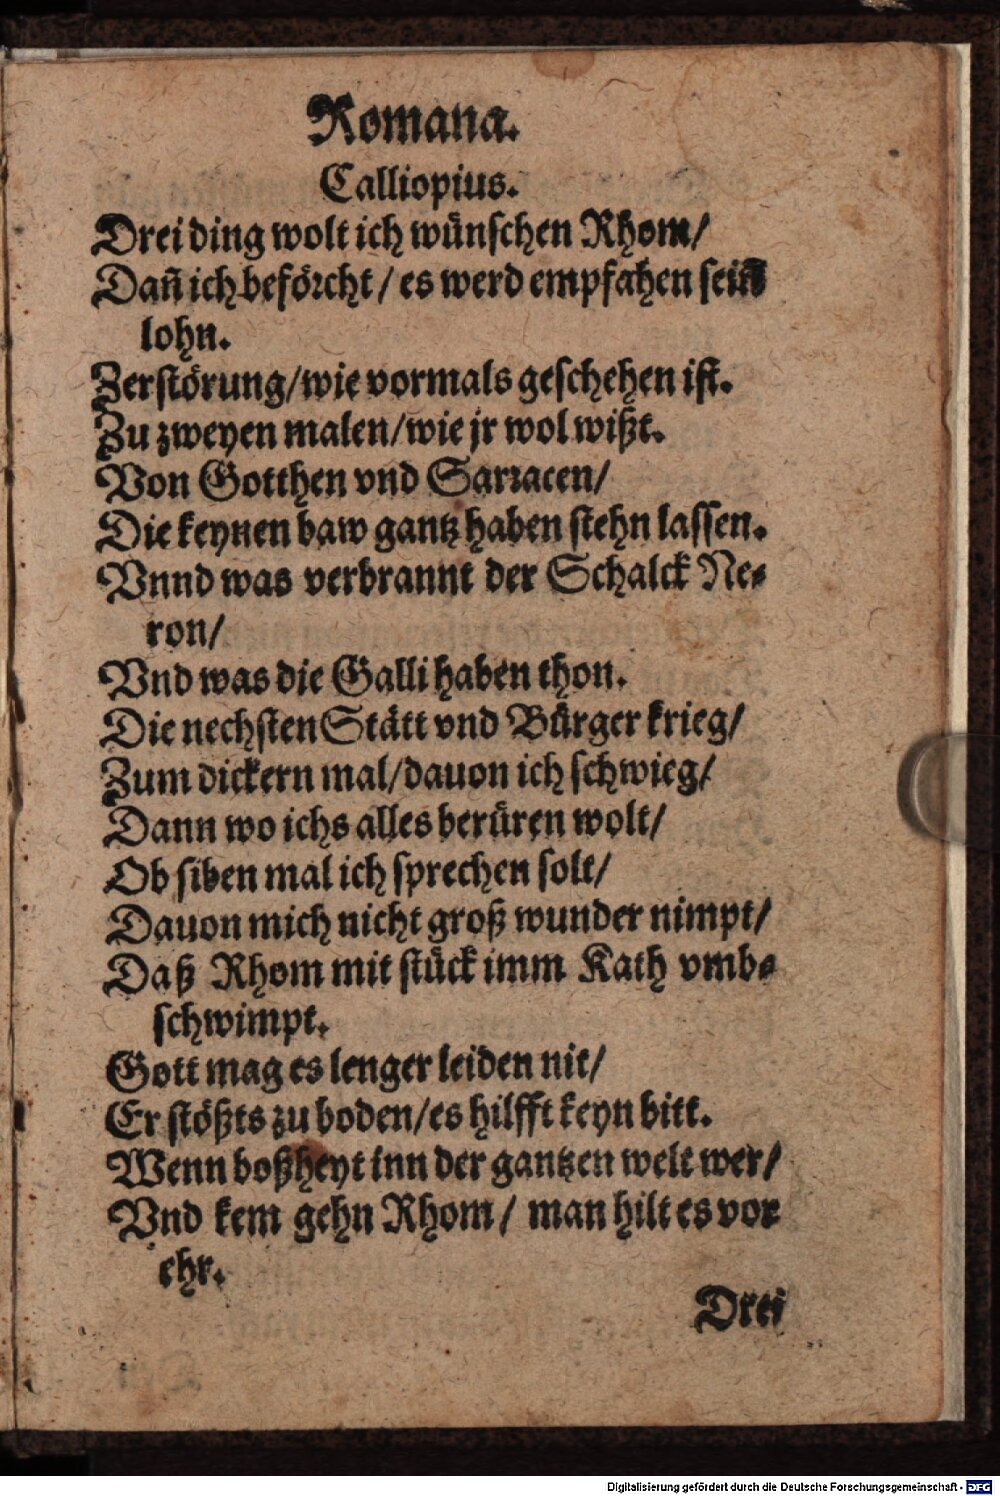 Romana.
Calliopius.
Drei ding wolt ich wünschen Rhom/
Dañ ich beförcht / es werd empfahen sein
lohn.
Zerstörung/wie vormals geschehen ist.
Zu zweyen malen/wie jr wol wißt.
Von Gotthen vnd Sarracen/
Die keynen baw gantz haben stehn lassen.
Vnnd was verbrannt der Schalck Ne-
ron/
Vnd was die Galli haben thon.
Die nechsten Stätt vnd Bürger krieg/
Zum dickern mal/dauon ich schwieg/
Dann wo ichs alles berüren wolt/
Ob siben mal ich sprechen solt/
Dauon mich nicht groß wunder nimpt/
Daß Rhom mit stück imm Kath vmb-
schwimpt.
Gott mag es lenger leiden nit/
Er stößts zu boden/es hilfft keyn bitt.
Wenn boßheyt inn der gantzen welt wer/
Vnd kem gehn Rhom / man hilt es vor
ehr.
Drei
Digitalisierung gefördert durch die Deutsche Forschungsgemeinschaft - DFG